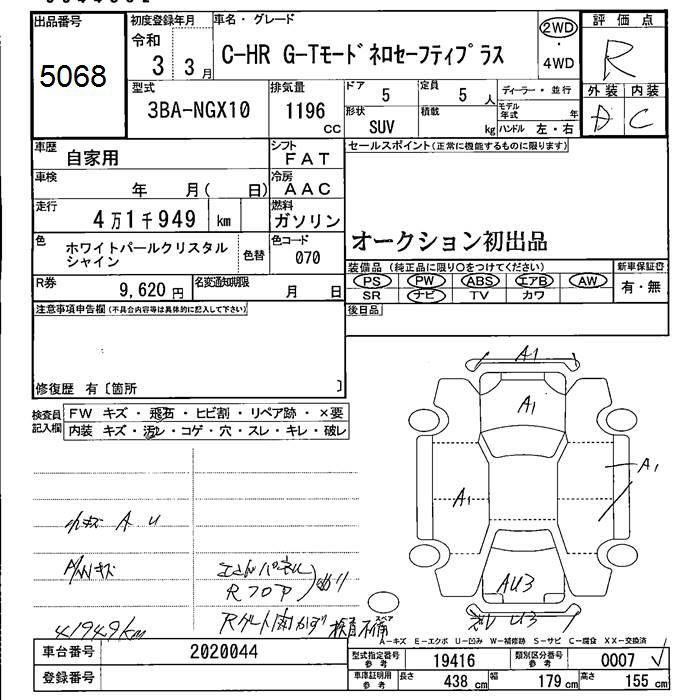 出品番号
5068
初度登録年月
令和
3 3月
車名・グレード
C-HR G-Tモード ネロセーフティプラス
2WD
・
4WD
評価点
R
外装 内装
C
型式
3BA-NGX10
排気量
1196
cc
ドア
5
定員
5人
形状
SUV
積載
kg
ディーラー・並行
モデル年式 年
ハンドル 左・右
車歴
自家用
シフト
FAT
車検
年 月( 日)
冷房
AAC
走行
4万1千949 km
燃料
ガソリン
色
ホワイトパールクリスタル
シャイン
色替
色コード
070
R券
9,620円
名変通知期限
月 日
セールスポイント(正常に機能するものに限ります)
オークション初出品
装備品(純正品に限り○をつけてください)
PS PW ABS エアB AW
SR ナビ TV カワ
新車保証書
有・無
後日品
注意事項申告欄(不具合内容等は具体的に記入して下さい)
修復歴 有〔箇所 〕
検査員
記入欄
FW キズ・飛石・ヒビ割・リペア跡・×要
内装 キズ・汚レ・コゲ・穴・スレ・キレ・破レ
A1
A1
A1
A1
AU3
U3
小キズ A U
キズ
エンドパネル
Rフロア
41949km
A-キズ E-エクボ U-凹み W-補修跡 S-サビ C-腐食 XX-交換済
車台番号
2020044
登録番号
型式指定番号
参考
19416
類別区分番号
参考
0007
車庫証明用
参考
長さ 438 cm 幅 179 cm 高さ 155 cm